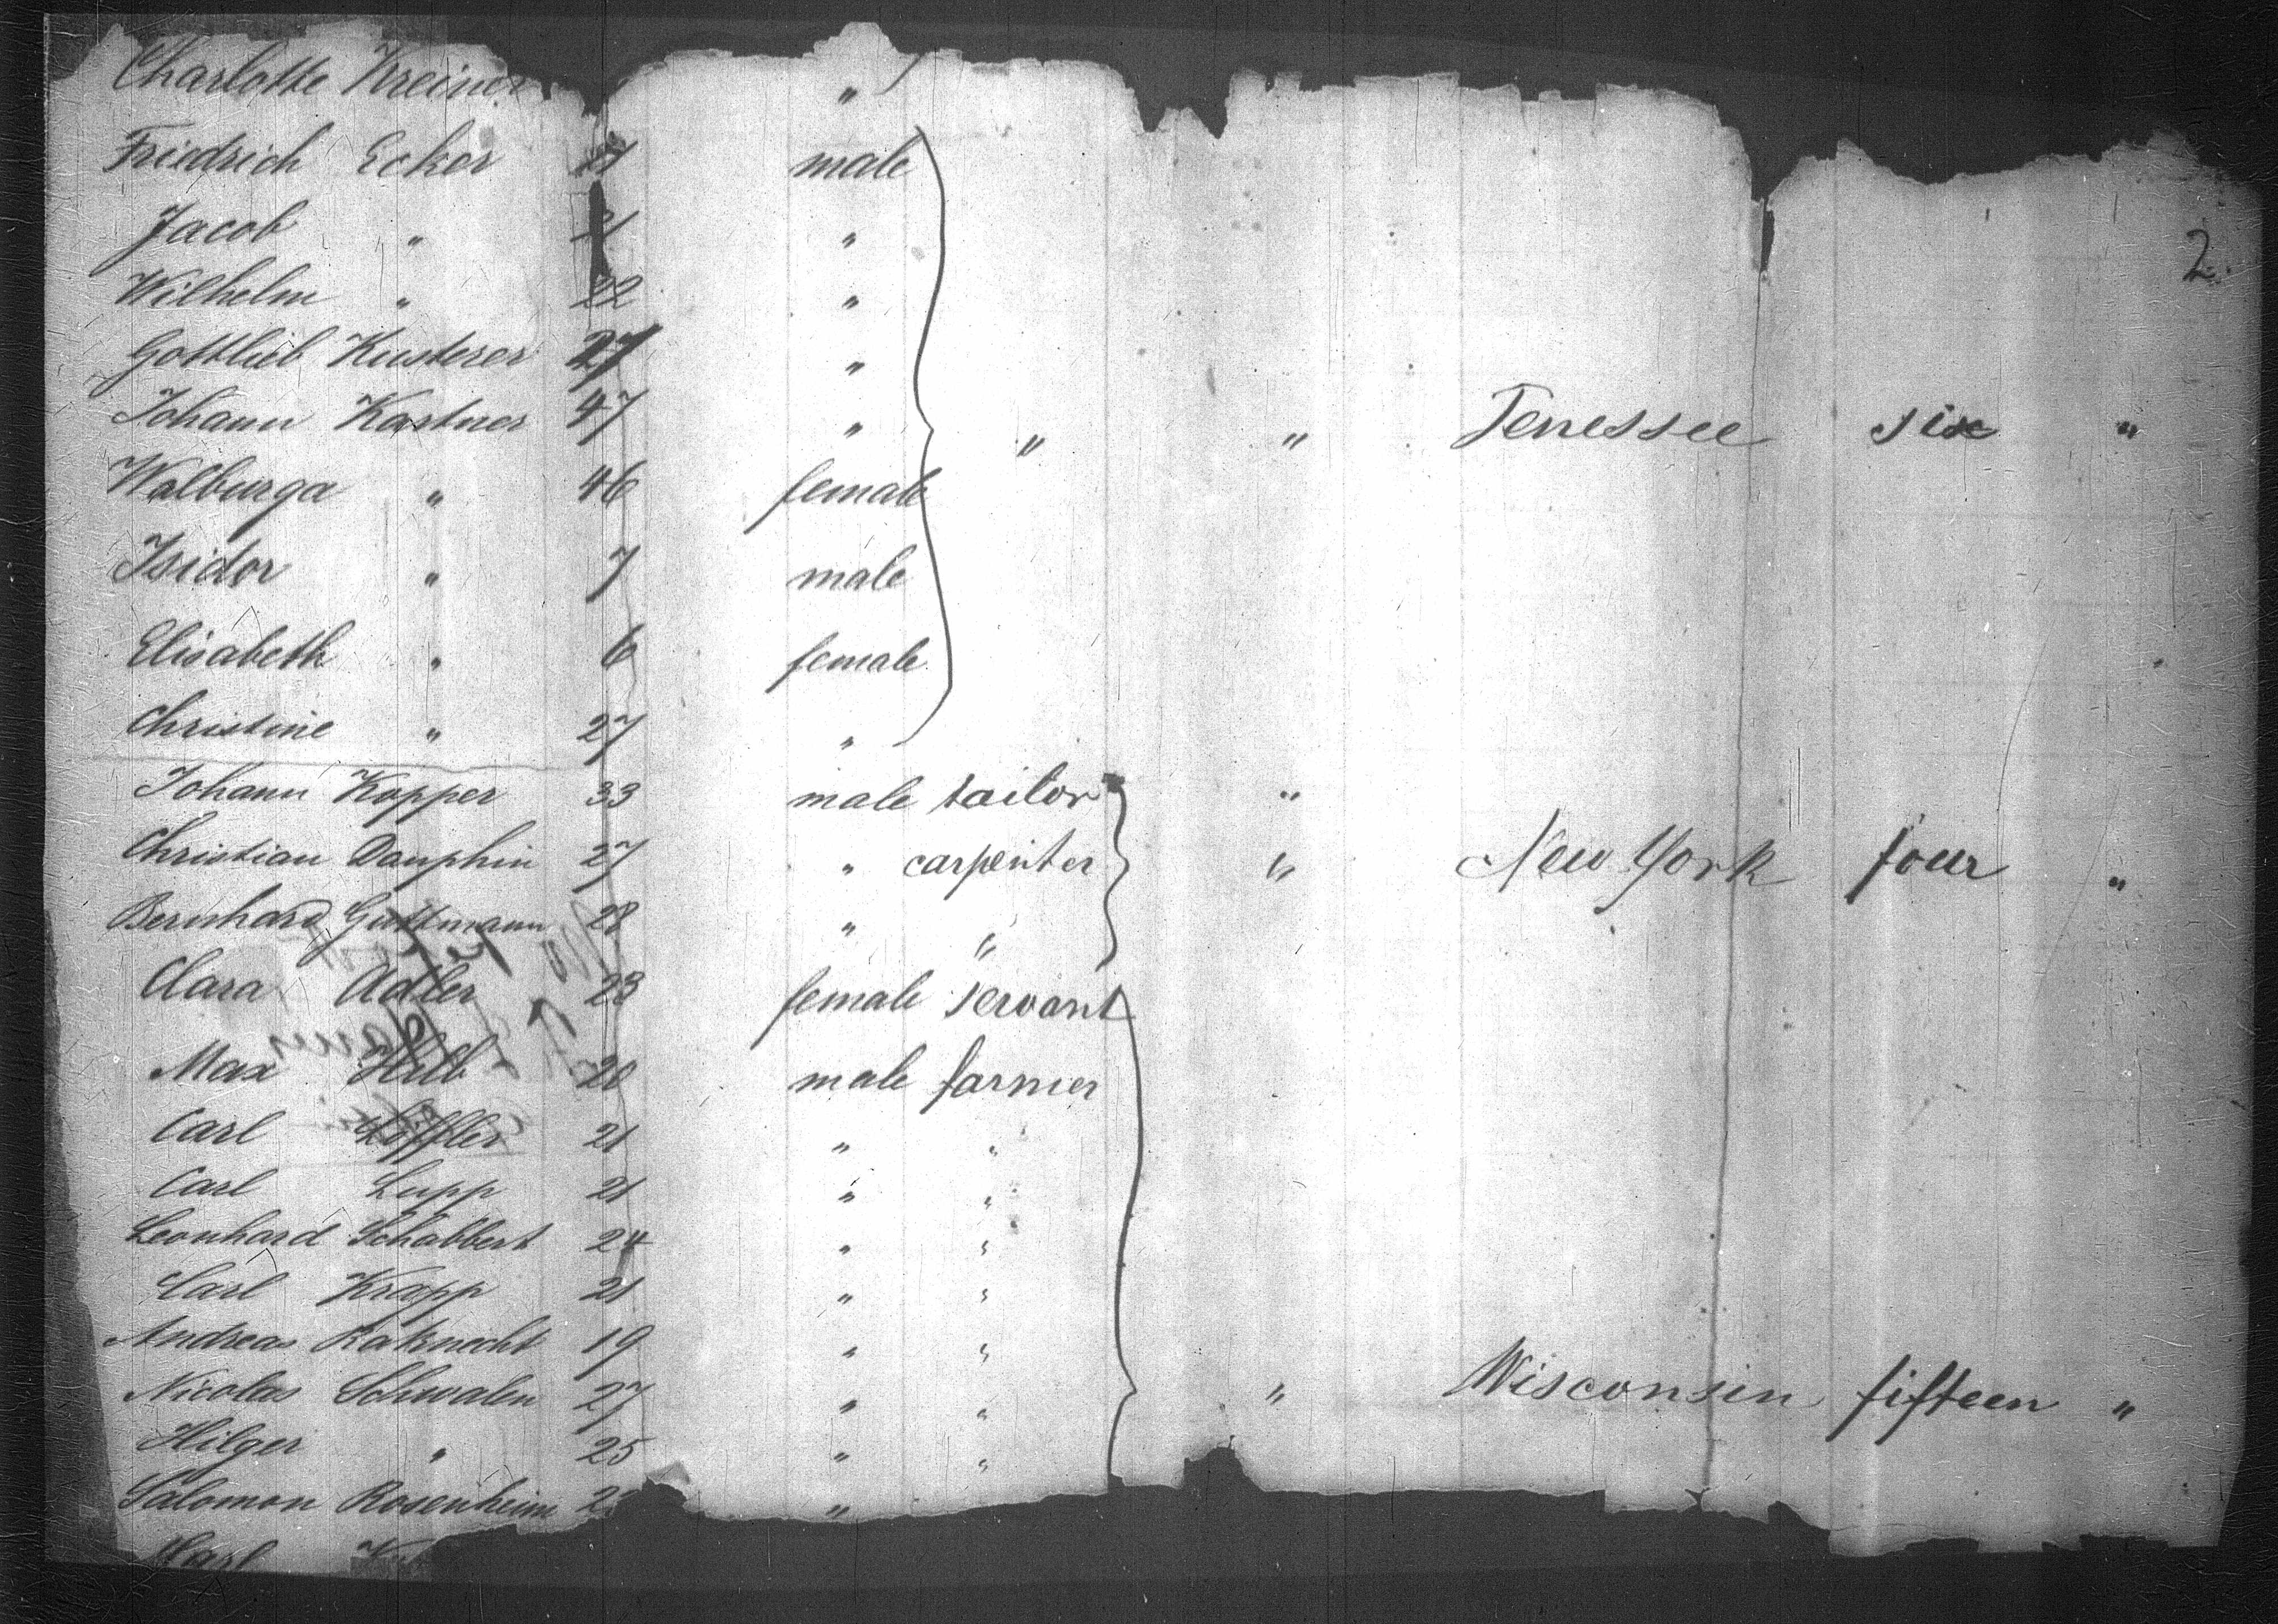 Charlotte Kreiner "
Friedrich Ecker 21 male
2.
Jacob " 21 "
Wilhelm " 22 "
Gottlieb Kusterer 27 "
Johann Kastner 47 " " " Tenessee six "
Walburga " 46 female
Isidor " 7 male
Elisabeth " 6 female
Christine " 27 "
Johann Kopper 33 male tailor "
Christian Dauphin 27 " carpenter " New York four "
Bernhard Guttmann 28 " "
Clara Adler 23 female servant
Max Hilb 20 male farmer
Carl Löffler 21 " "
Carl Lupp 21 " "
Leonhard Schabbert 24 " "
Carl Krapp 21 " "
Andreas Raknecht 19 " "
Nicolas Schwalen 27 " " " Wisconsin fifteen "
Hilger " 25 " "
Salomon Rosenheim "